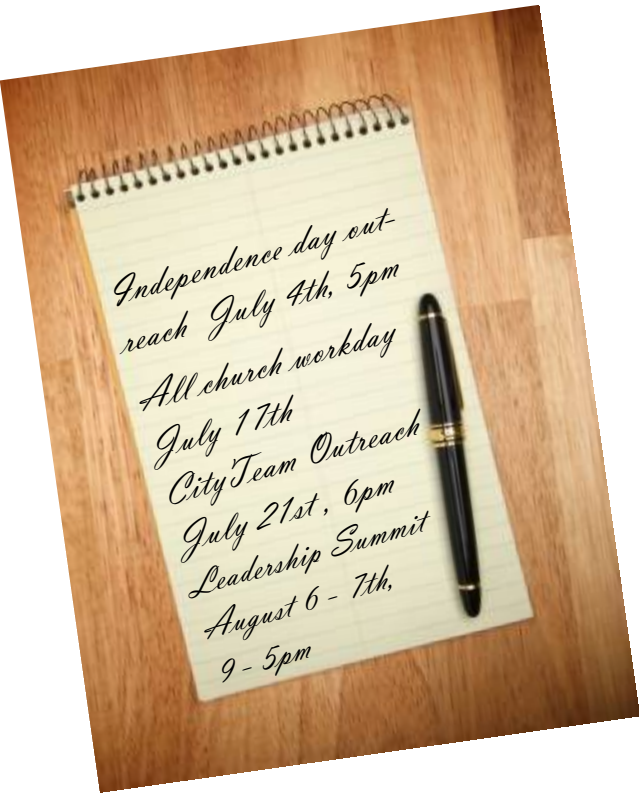 Independence day out-
reach July 4th, 5pm
All church workday
July 17th
CityTeam Outreach
July 21st, 6pm
Leadership Summit
August 6 - 7th,
9 - 5pm